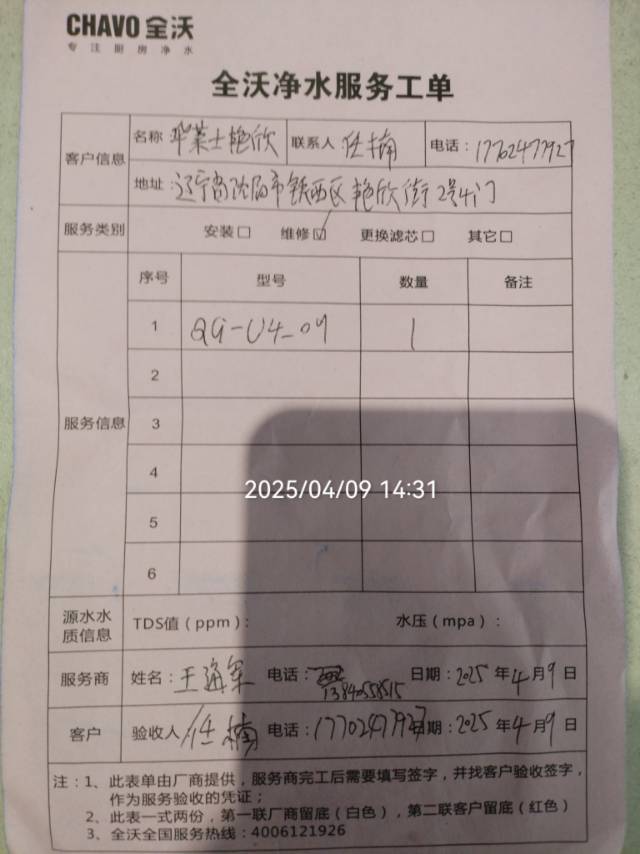 CHAVO 全沃
专注厨房净水
全沃净水服务工单
客户信息
名称 华莱士艳欣 联系人 任楠 电话：17702477927
地址：辽宁省沈阳市铁西区艳欣街2号4门
服务类别 安装□ 维修☑ 更换滤芯□ 其它□
服务信息
序号 型号 数量 备注
1 QG-U4-09 1
2
3
4
2025/04/09 14:31
5
6
源水水质信息
TDS值（ppm）： 水压（mpa）：
服务商 姓名：王海军 电话： 日期：2025年4月9日
客户 验收人 任楠 电话：17702477927 日期：2025年4月9日
注：1、此表单由厂商提供，服务商完工后需要填写签字，并找客户验收签字，
作为服务验收的凭证；
2、此表一式两份，第一联厂商留底（白色），第二联客户留底（红色）
3、全沃全国服务热线：4006121926